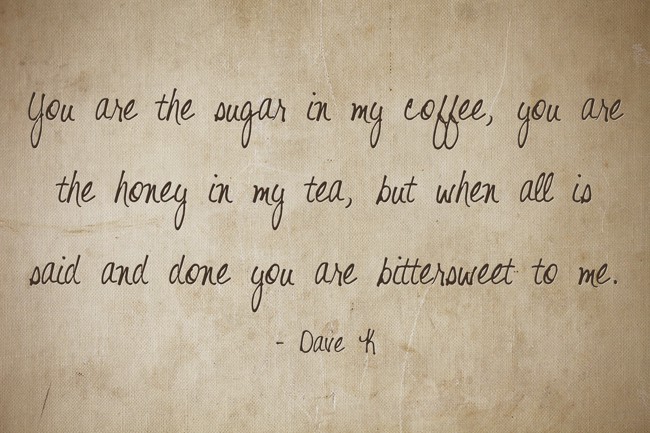 You are the sugar in my coffee, you are
the honey in my tea, but when all is
said and done you are bittersweet to me.
- Dave K